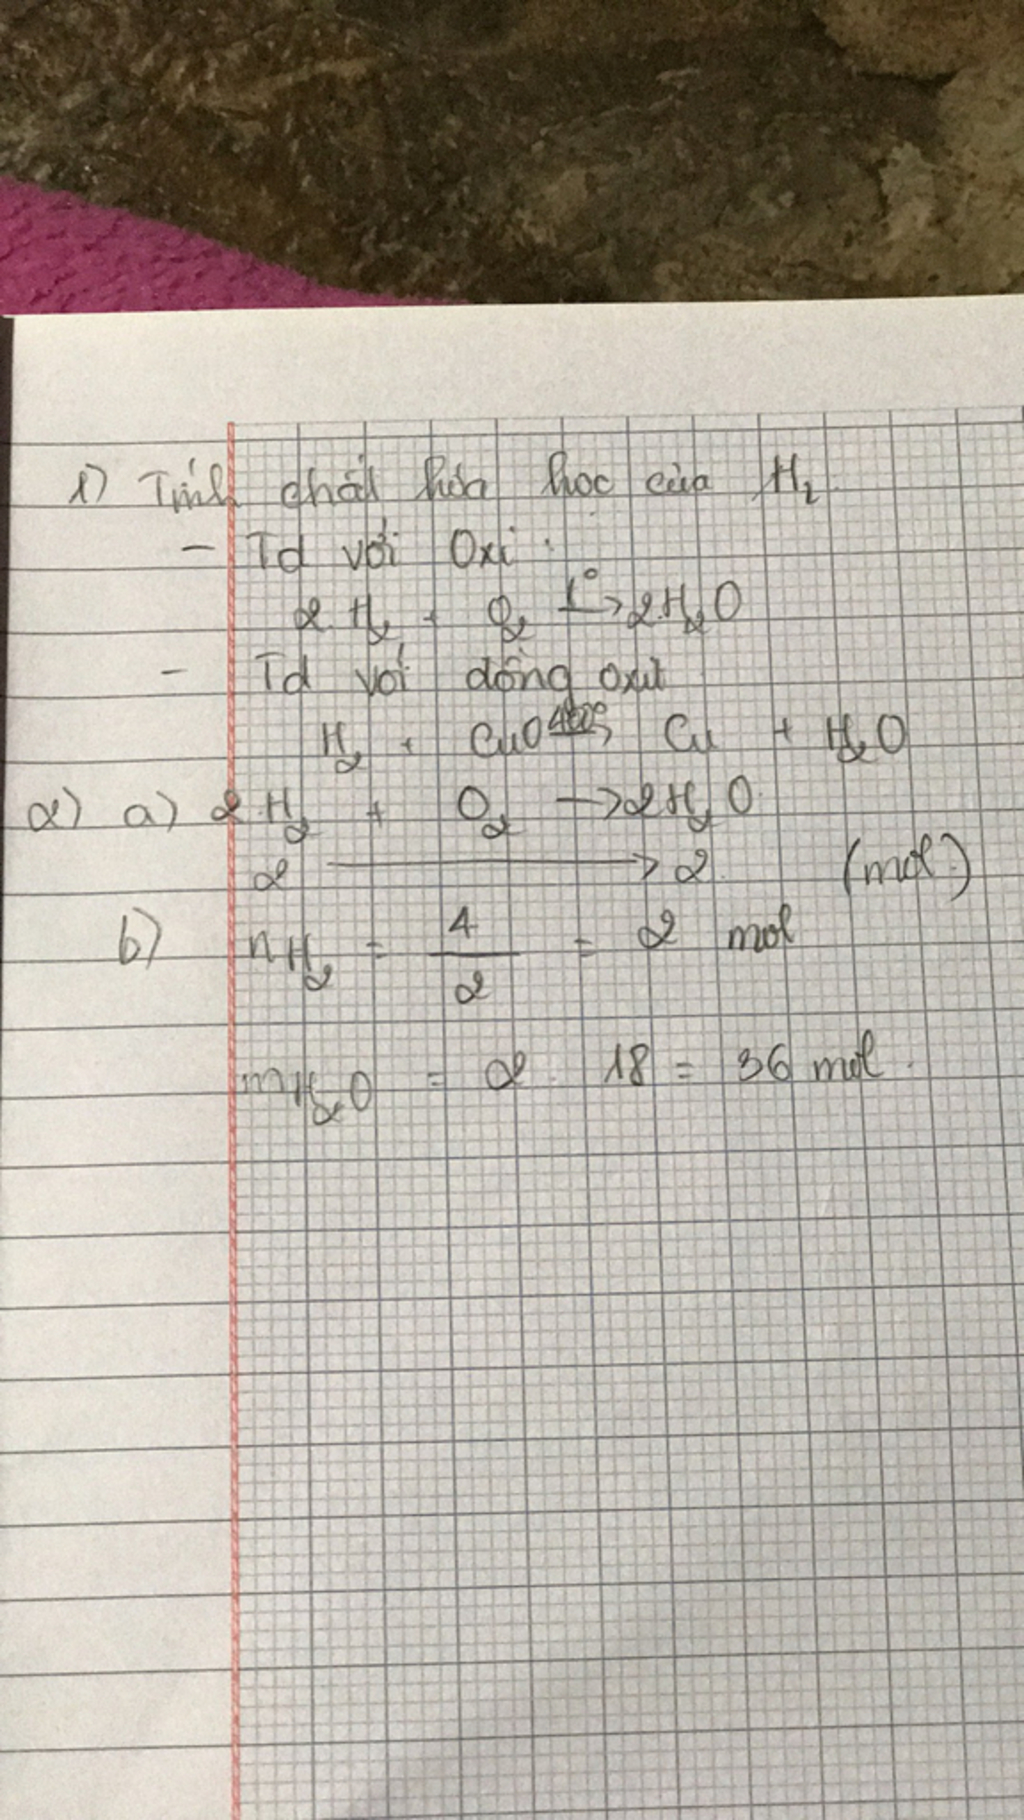 1) Tính chất hóa học của H₂
- Td với Oxi.
2 H₂ + O₂ t°→ 2H₂O
- Td với đồng oxit
H₂ + CuO 400°→ Cu + H₂O
2) a) 2 H₂ + O₂ → 2H₂O
2 → 2 (mol)
b) nH₂ = 4/2 = 2 mol
mH₂O = 2 . 18 = 36 mol.